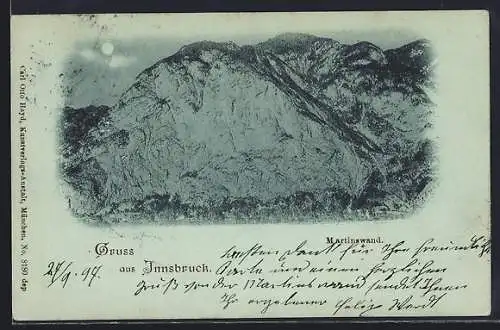 Carl Otto Hayd, Kunstverlags-Anstalt, München, No. 8180 dep
Martinswand.
Gruss
aus Innsbruck.
24/9. 97.
besten Dank für Ihre freundliche
Karte und einen herzlichen
Gruß von der Martinswand sendet Ihnen
Ihr ergebener